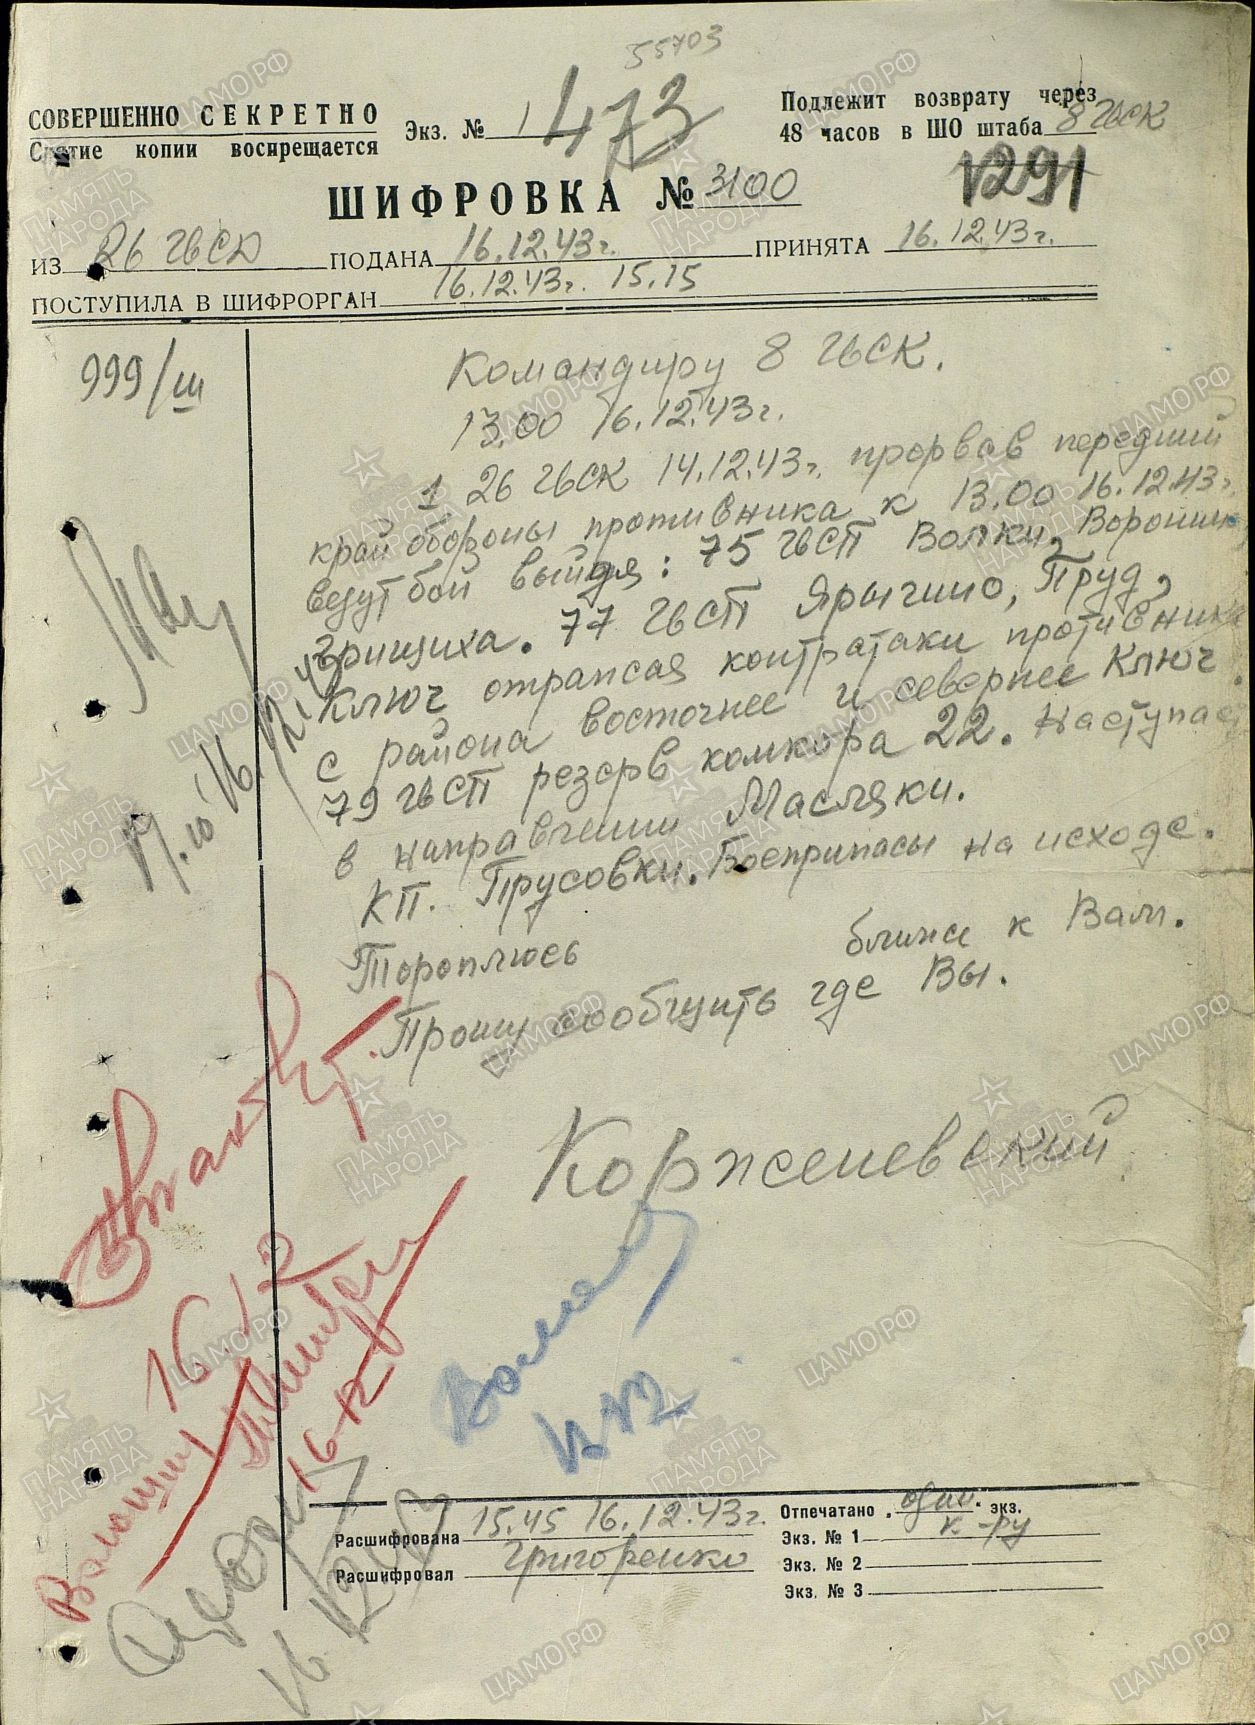 55703
СОВЕРШЕННО СЕКРЕТНО
Снятие копии воспрещается
Экз. № 1
473
Подлежит возврату через
48 часов в ШО штаба 8 ГвСК
1291
ШИФРОВКА № 3100
ИЗ 26 ГвСД ПОДАНА 16.12.43г. ПРИНЯТА 16.12.43г.
ПОСТУПИЛА В ШИФРОРГАН 16.12.43г. 15.15
999/ш
Командиру 8 ГвСК.
13.00 16.12.43г.
1. 26 ГвСК 14.12.43г. прорвав передний
край обороны противника к 13.00 16.12.43г.
ведут бой выйдя: 75 ГвСП Волки,
Грищиха. 77 ГвСП Ярыгино, Пруд,
Ключ отражая контратаки противника
с района восточнее и севернее Ключ.
79 ГвСП резерв комкора 22. Наступает
в направлении Масляки.
КП. Трусовки. Боеприпасы на исходе.
Тороплюсь ближе к Вам.
Прошу сообщить где Вы.
Корженевский
16.12
16.12
Расшифрована 15.45 16.12.43г.
Расшифровал Григоренко
Отпечатано один. экз.
Экз. № 1 к-ру
Экз. № 2
Экз. № 3
ЦАМО.РФ
ПАМЯТЬ
НАРОДА